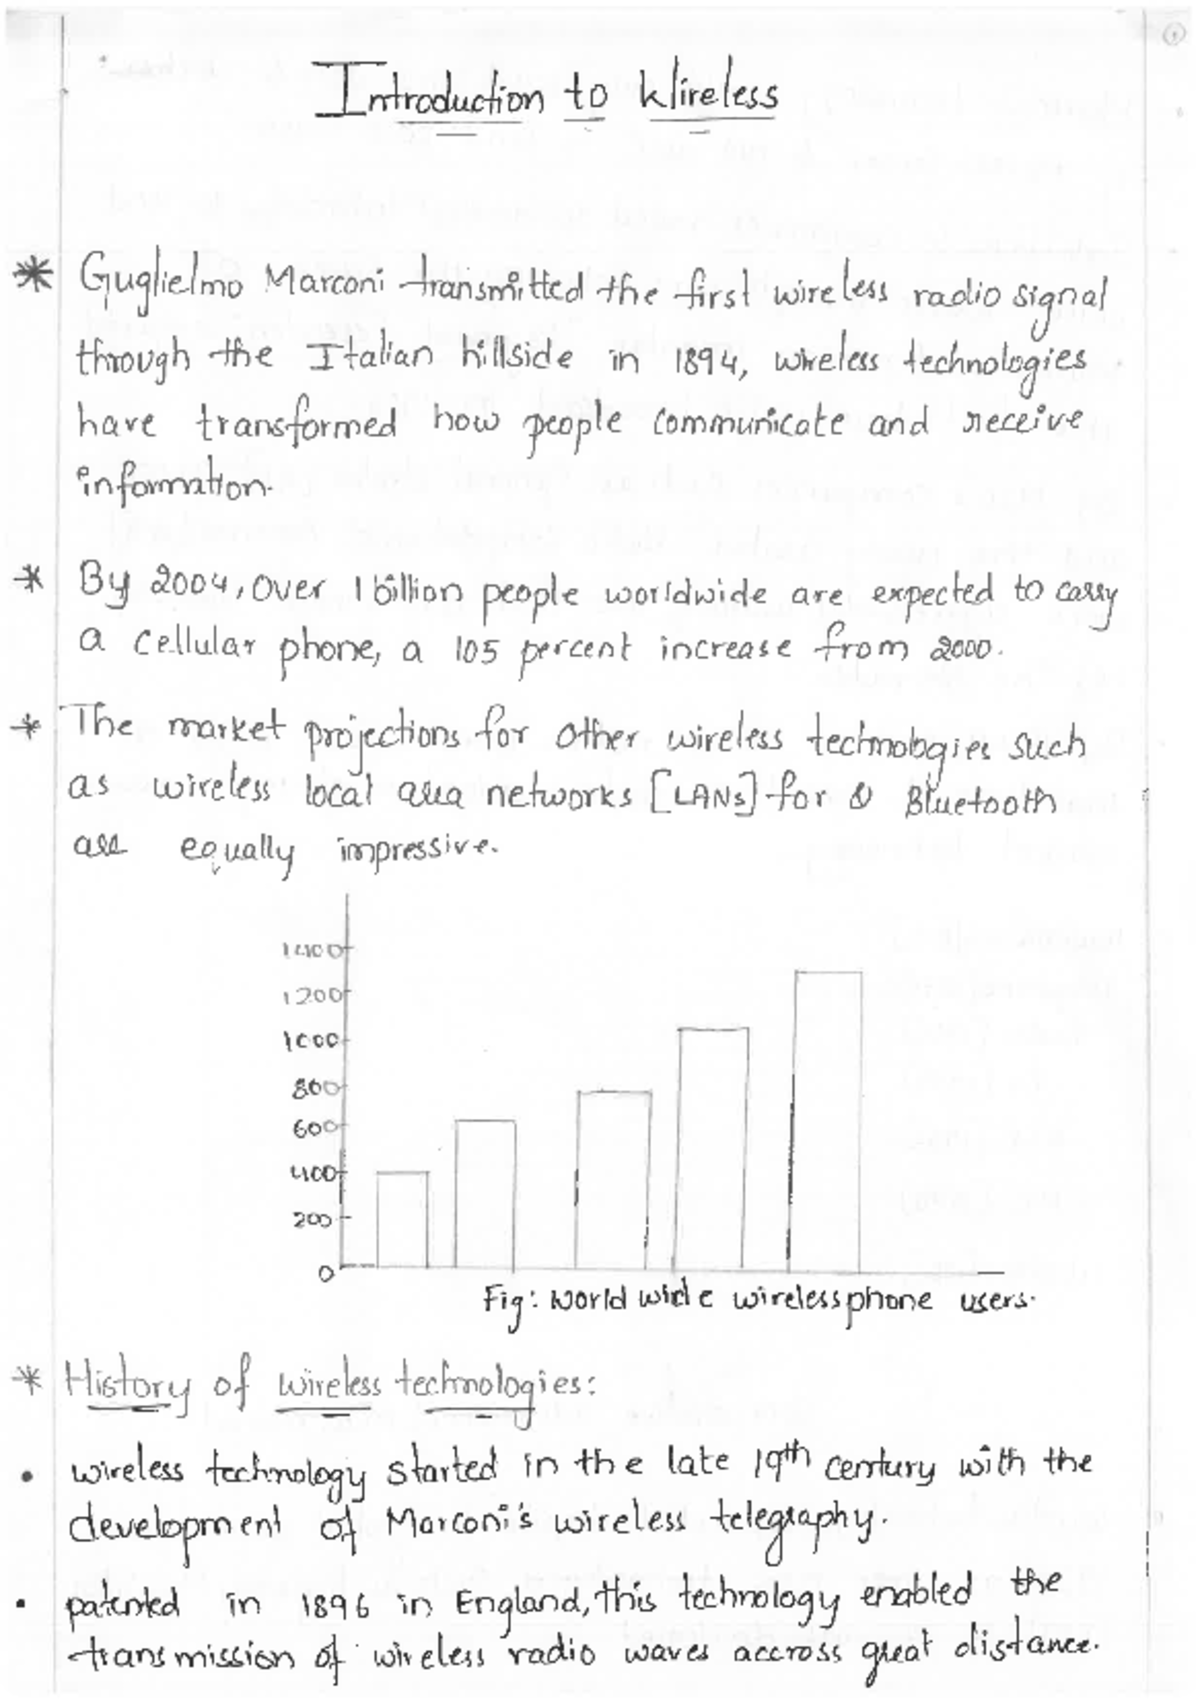 1
Introduction to Wireless
* Guglielmo Marconi transmitted the first wireless radio signal
through the Italian hillside in 1894, wireless technologies
have transformed how people communicate and receive
information.
* By 2004, over 1 billion people worldwide are expected to carry
a cellular phone, a 105 percent increase from 2000.
* The market projections for other wireless technologies such
as wireless local area networks [LANs] for & Bluetooth
are equally impressive.
1400
1200
1000
800
600
400
200
0
Fig: World wide wireless phone users.
* History of wireless technologies:
• wireless technology started in the late 19th century with the
development of Marconi's wireless telegraphy.
• patented in 1896 in England, this technology enabled the
transmission of wireless radio waves accross great distance.